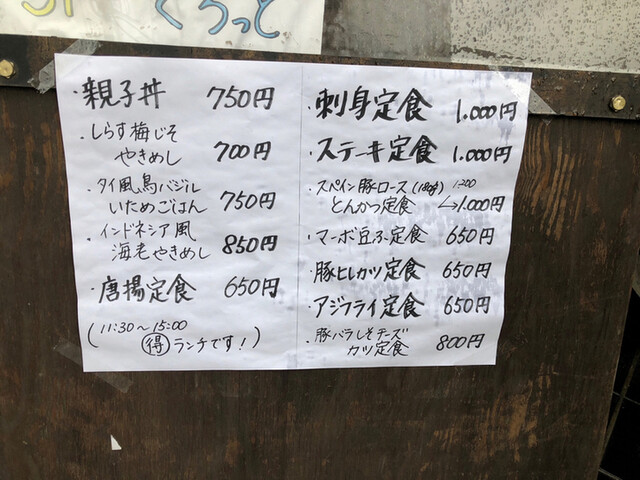 くらっと
・親子丼 750円
・しらす梅じそ
やきめし 700円
・タイ風鳥バジル
いためごはん 750円
・インドネシア風
海老やきめし 850円
・唐揚定食 650円
(11:30〜15:00
得 ランチです!)
・刺身定食 1.000円
・ステーキ定食 1.000円
・スペイン豚ロース(180g) 1200
とんかつ定食 ↳1.000円
・マーボ豆ふ定食 650円
・豚ヒレカツ定食 650円
・アジフライ定食 650円
・豚バラしそチーズ
カツ定食 800円